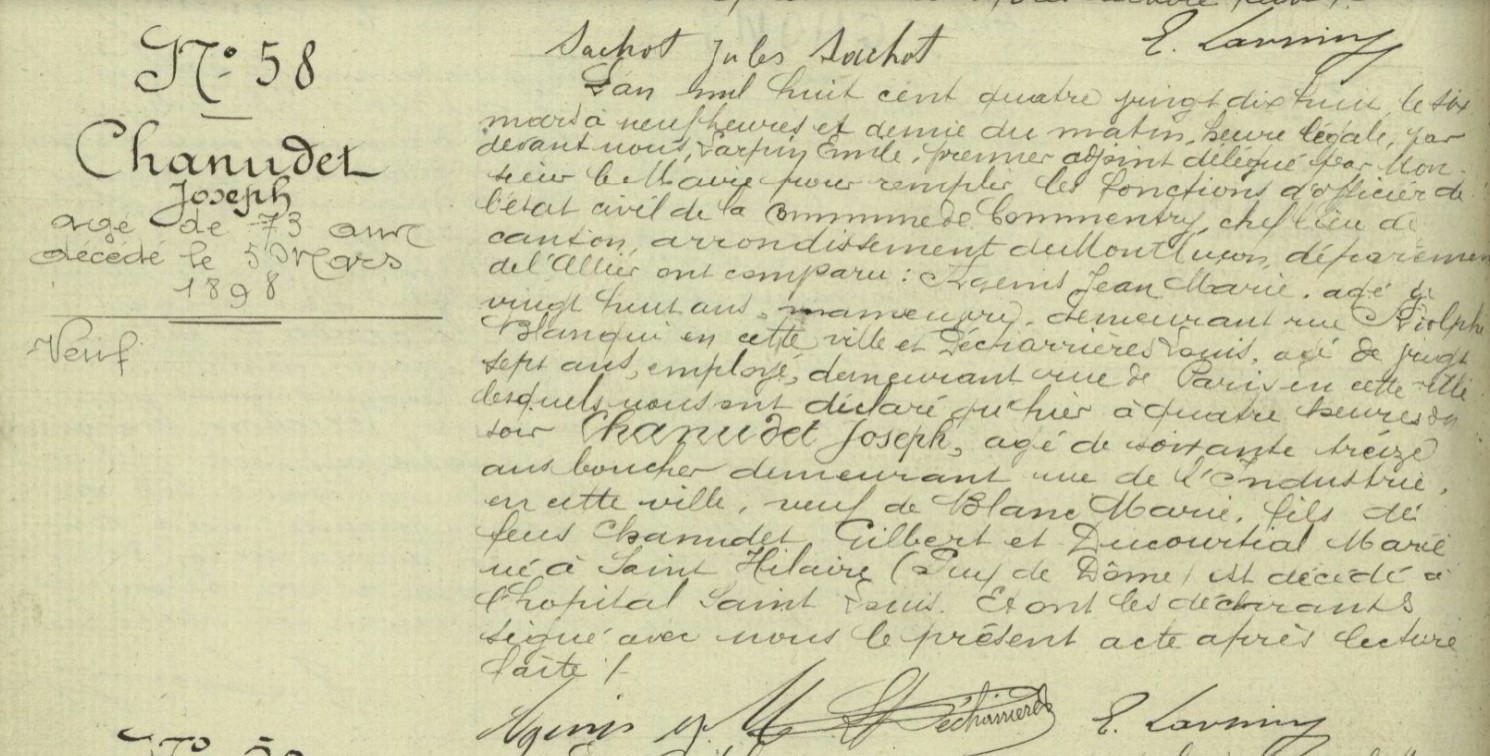 Sachot Jules Sachot
N° 58
Chanudet
Joseph
agé de 73 ans
décédé le 5 Mars
1898
Veuf
L'an mil huit cent quatre vingt dix huit, le six
mars à neuf heures et demie du matin, heure légale, par
devant nous, Emile, premier adjoint délégué par Mon-
sieur le Maire pour remplir les fonctions d'officier de
l'état civil de la commune de Commentry, chef lieu de
canton, arrondissement de Montluçon, département
de l'Allier ont comparu : Agenis Jean Marie, agé de
vingt huit ans, manœuvre, demeurant rue
Blanqui en cette ville et Décharrières Louis, agé de vingt
sept ans, employé, demeurant rue de Paris en cette ville
lesquels nous ont déclaré qu'hier à quatre heures du
soir Chanudet Joseph, agé de soixante treize
ans boucher demeurant rue de l'Industrie,
en cette ville, veuf de Blanc Marie, fils de
feus Chanudet Gilbert et Ducourtial Marie
né à Saint Hilaire (Puy de Dôme) est décédé à
l'hopital Saint Louis. Et ont les déclarants
signé avec nous le présent acte après lecture
faite /.
Agenis J M Décharrières